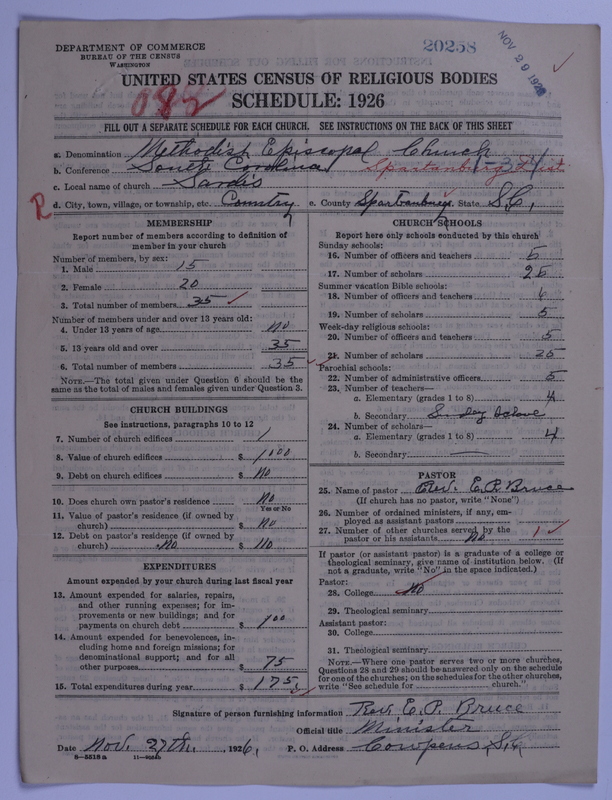 DEPARTMENT OF COMMERCE
BUREAU OF THE CENSUS
WASHINGTON
20258
NOV 29 1926
UNITED STATES CENSUS OF RELIGIOUS BODIES
SCHEDULE: 1926
FILL OUT A SEPARATE SCHEDULE FOR EACH CHURCH. SEE INSTRUCTIONS ON THE BACK OF THIS SHEET
a. Denomination Methodist Episcopal Church
b. Conference South Carolina Spartanburg Dist
c. Local name of church Sardis
R d. City, town, village, or township, etc. Country e. County Spartanburg State S.C.,
MEMBERSHIP
Report number of members according to definition of
member in your church
Number of members, by sex:
1. Male 15
2. Female 20
3. Total number of members 35
Number of members under and over 13 years old:
4. Under 13 years of age no
5. 13 years old and over 35
6. Total number of members 35
NOTE.—The total given under Question 6 should be
same as the total of males and females given under Question 3.
CHURCH BUILDINGS
See instructions, paragraphs 10 to 12
7. Number of church edifices 1
8. Value of church edifices $ 1,000
9. Debt on church edifices $ No
10. Does church own pastor's residence No
Yes or No
11. Value of pastor's residence (if owned by
church) $ No
12. Debt on pastor's residence (if owned by
church) No $ No
EXPENDITURES
Amount expended by your church during last fiscal year
13. Amount expended for salaries, repairs,
and other running expenses; for im-
provements or new buildings; and for
payments on church debt $ 100
14. Amount expended for benevolences, in-
cluding home and foreign missions; for
denominational support; and for all
other purposes $ 75
15. Total expenditures during year $ 175
CHURCH SCHOOLS
Report here only schools conducted by this church
Sunday schools:
16. Number of officers and teachers 5
17. Number of scholars 25
Summer vacation Bible schools:
18. Number of officers and teachers 6
19. Number of scholars 5
Week-day religious schools:
20. Number of officers and teachers 5
21. Number of scholars 25
Parochial schools:
22. Number of administrative officers 5
23. Number of teachers—
a. Elementary (grades 1 to 8) 4
b. Secondary
24. Number of scholars—
a. Elementary (grades 1 to 8) 4
b. Secondary
PASTOR
25. Name of pastor Rev. E. P. Bruce
(If church has no pastor, write "None")
26. Number of ordained ministers, if any, em-
ployed as assistant pastors
27. Number of other churches served by the
pastor or his assistants No 1
If pastor (or assistant pastor) is a graduate of a college or
theological seminary, give name of institution below. (If
not a graduate, write "No" in the space indicated.)
Pastor:
28. College No
29. Theological seminary
Assistant pastor:
30. College
31. Theological seminary
NOTE.—Where one pastor serves two or more churches,
Questions 28 and 29 should be answered only on the schedule
for one of the churches; on the schedules for the other churches,
write "See schedule for church."
Signature of person furnishing information Rev. E. P. Bruce
Official title Minister
Date Nov. 27th, 1926, P. O. Address Cowpens, S.C.
8-5518a 11-9054b